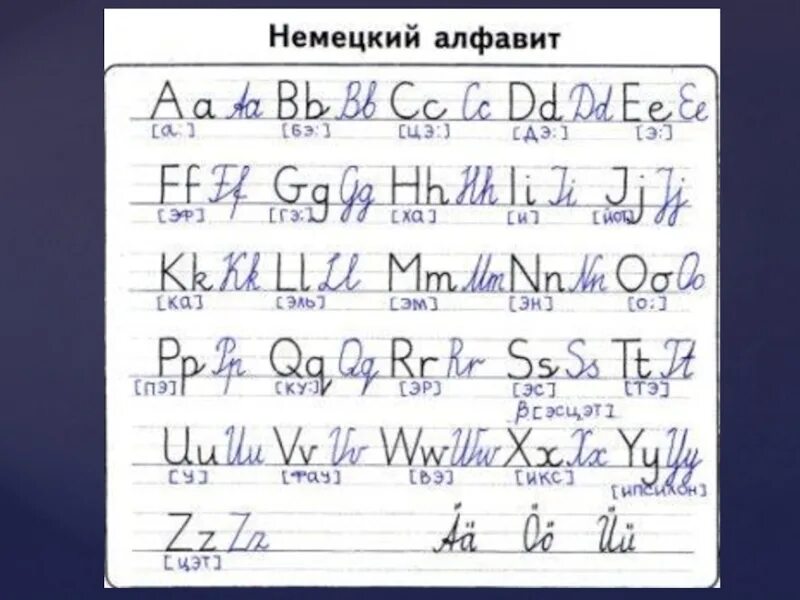 Немецкий алфавит
Aa Aa Bb Bb Cc Cc Dd Dd Ee Ee
[а:] [бэ:] [цэ:] [дэ:] [э:]
Ff Ff Gg Gg Hh Hh Ii Ii Jj Jj
[эф] [гэ:] [ха] [и] [йот]
Kk Kk Ll Ll Mm Mm Nn Nn Oo Oo
[ка] [эль] [эм] [эн] [о:]
Pp Pp Qq Qq Rr Rr Ss Ss Tt Tt
[пэ] [ку:] [эр] [эс] [тэ]
β[эсцэт]
Uu Uu Vv Vv Ww Ww Xx Xx Yy Yy
[у] [фау] [вэ] [икс] [ипсилон]
Zz Zz Ää Öö Üü
[цэт]